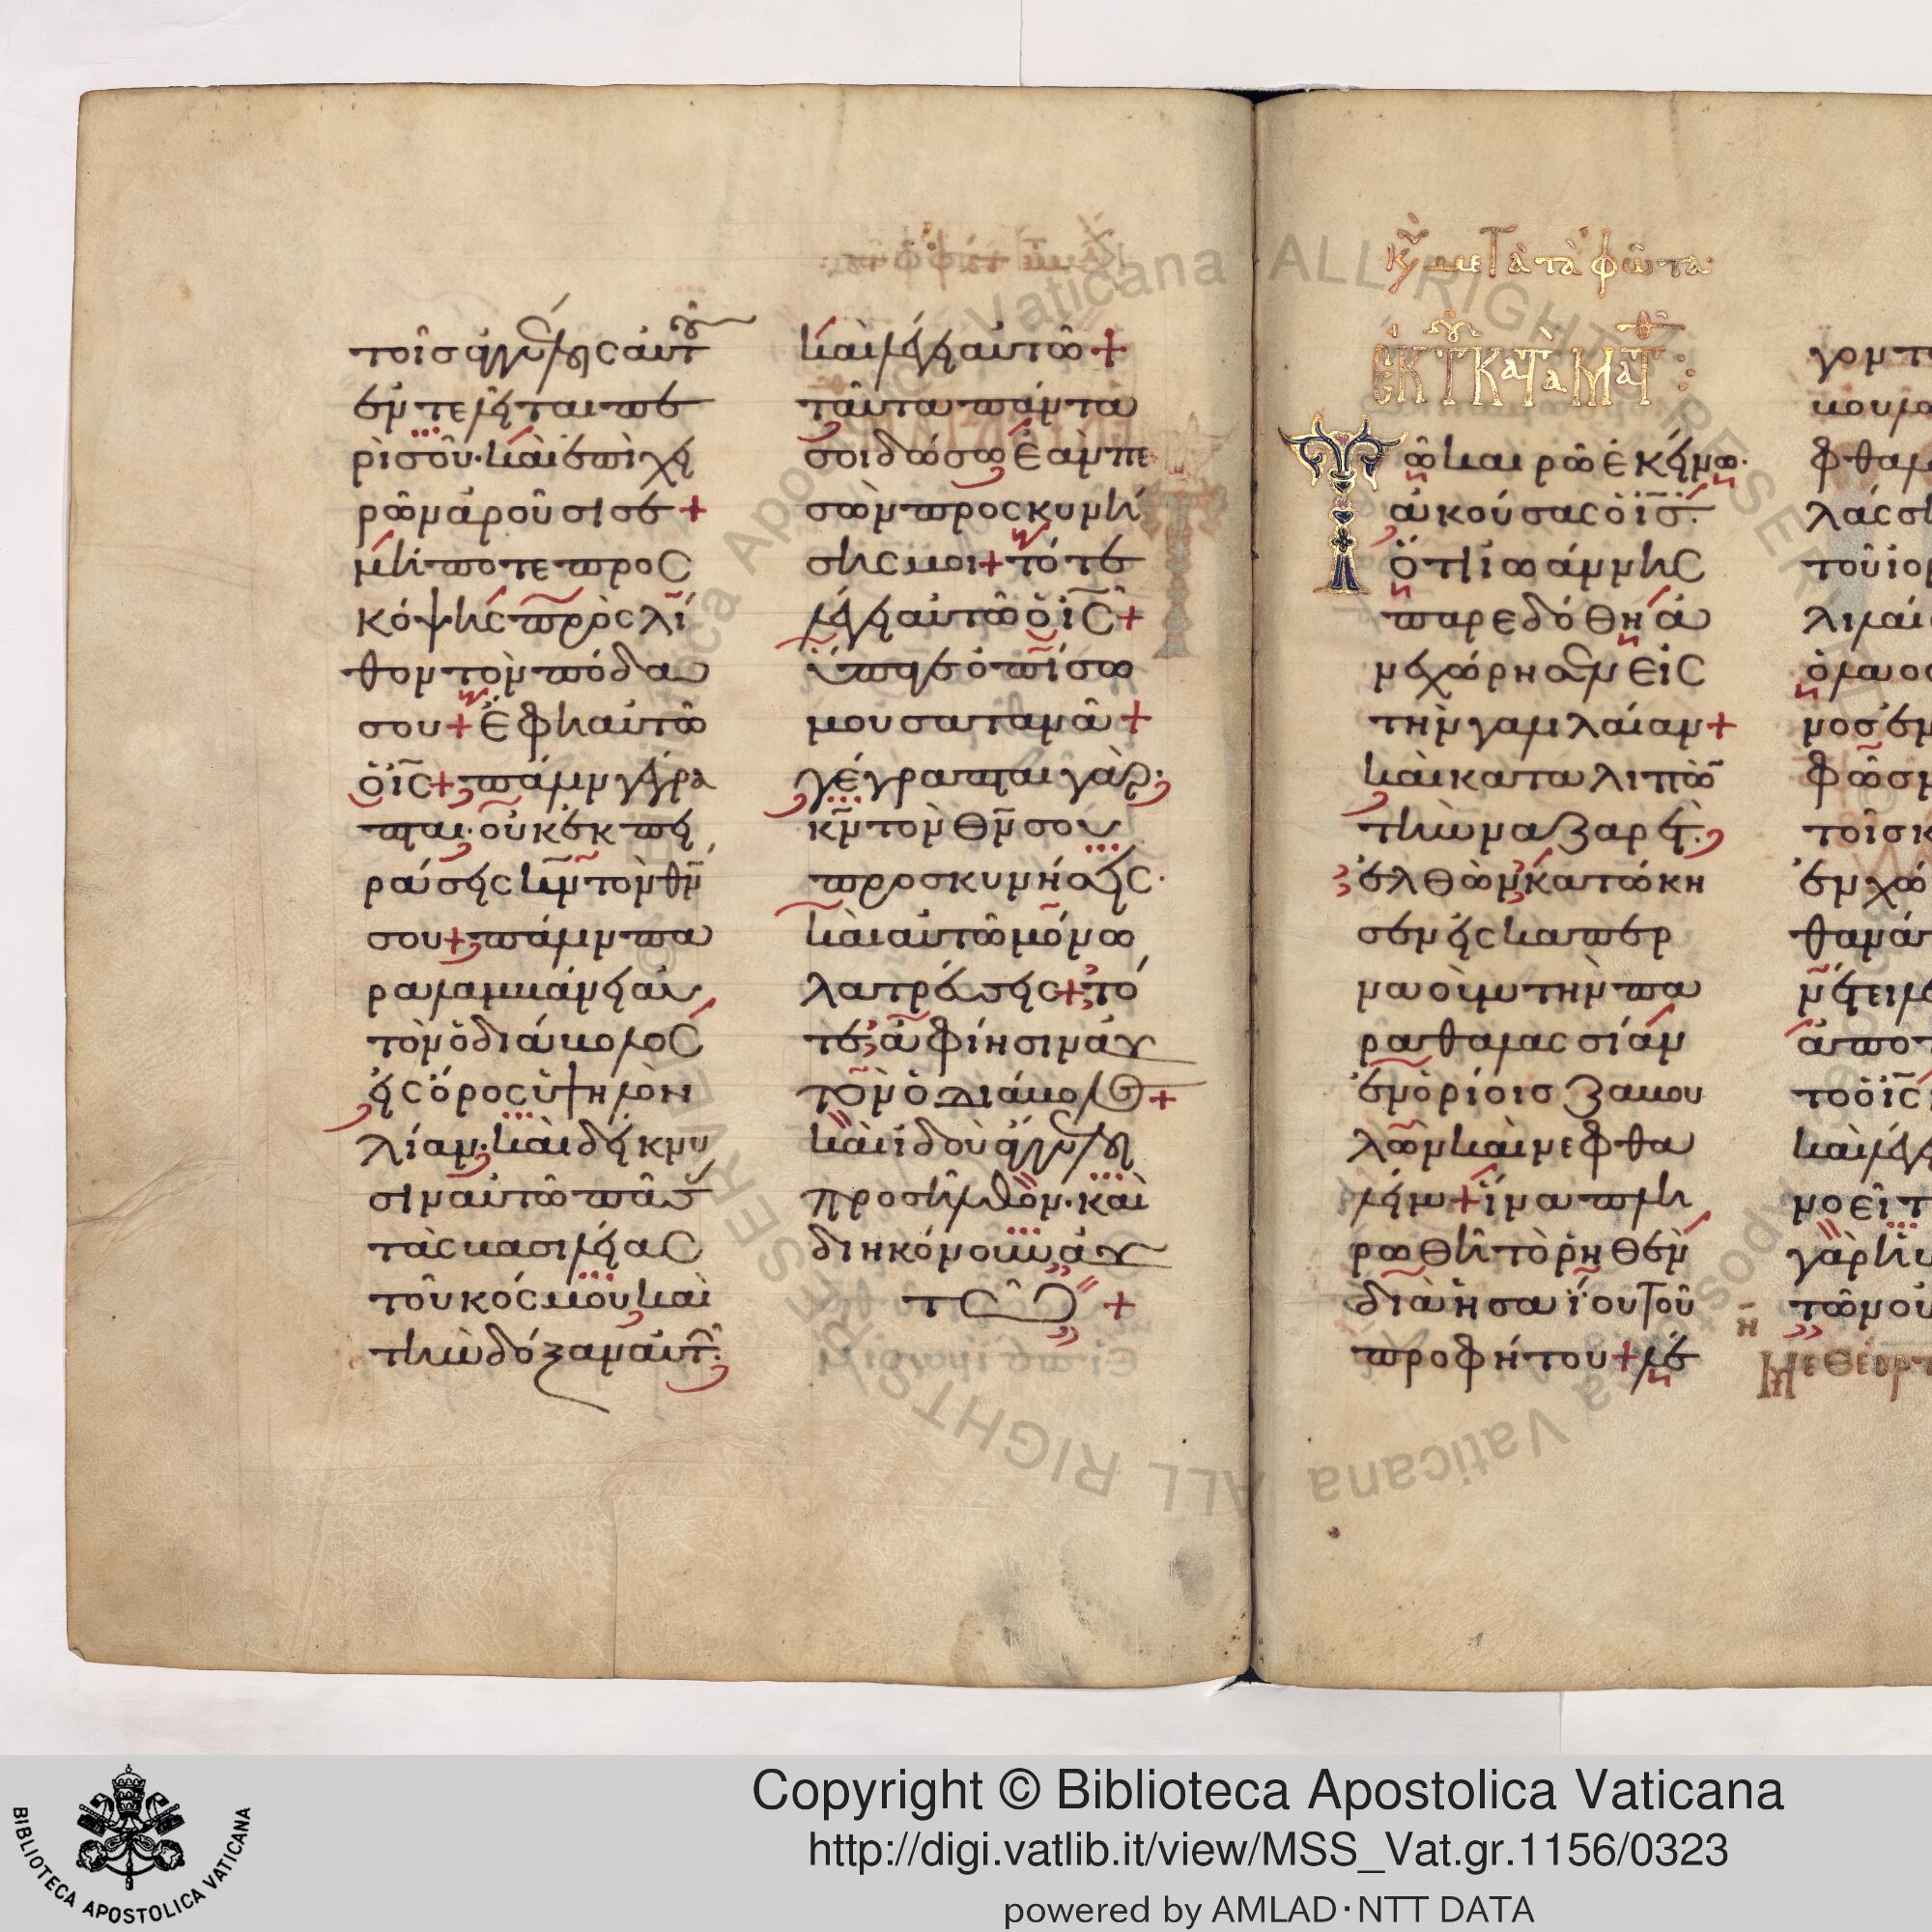 τοῖς ἀγγέλοις αὐτοῦ
ἐντελεῖται πε
ρὶ σοῦ· καὶ ἐπὶ χει
ρῶν ἀροῦσί σε +
μήποτε προσ
κόψης πρὸς λί
θον τὸν πόδα
σου + ἔφη αὐτῶ
ὁ ις + πάλιν γέγρα
πται· οὐκ ἐκπει
ράσεις κν τὸν θν
σου + πάλιν πα
ραλαμβάνει αὐ
τὸν ὁ διάβολος
εἰς ὄρος ὑψηλὸν
λίαν· καὶ δείκνυ
σιν αὐτῶ πάσας
τὰς βασιλείας
τοῦ κόσμου καὶ
τὴν δόξαν αὐτῶν·
καὶ λέγει αὐτῶ +
ταῦτα πάντα
σοι δώσω ἐὰν πε
σὼν προσκυνή
σης μοι + τότε
λέγει αὐτῶ ὁ ις +
ὕπαγε ὀπίσω
μου σατανᾶ +
γέγραπται γὰρ·
κν τὸν θν σου
προσκυνήσεις·
καὶ αὐτῶ μόνω
λατρεύσεις + τό
τε ἀφίησιν αὐ
τὸν ὁ διάβολος +
καὶ ἰδοὺ ἄγγελοι
προσῆλθον· καὶ
διηκόνουν αὐ
τῶ +
κυ μετὰ τὰ φῶτα
ἐκ τοῦ κατὰ Ματθ :
Τῶ καιρῶ ἐκείνω·
ἀκούσας ὁ ις·
ὅτι ἰωάννης
παρεδόθη ἀ
νεχώρησεν εἰς
τὴν γαλιλαίαν +
καὶ καταλιπὼν
τὴν ναζαρέτ·
ἐλθὼν κατώκη
σεν εἰς καπερ
ναοὺμ τὴν πα
ραθαλασσίαν
ἐν ὁρίοις ζαβου
λὼν καὶ νεφθα
λείμ + ἵνα πλη
ρωθῆ τὸ ῥηθὲν
διὰ ἡσαΐου τοῦ
προφήτου + λέ
γοντ
φθαλ
λιλαί
Μεθέορτ
Copyright © Biblioteca Apostolica Vaticana
http://digi.vatlib.it/view/MSS_Vat.gr.1156/0323
powered by AMLAD·NTT DATA
BIBLIOTECA APOSTOLICA VATICANA